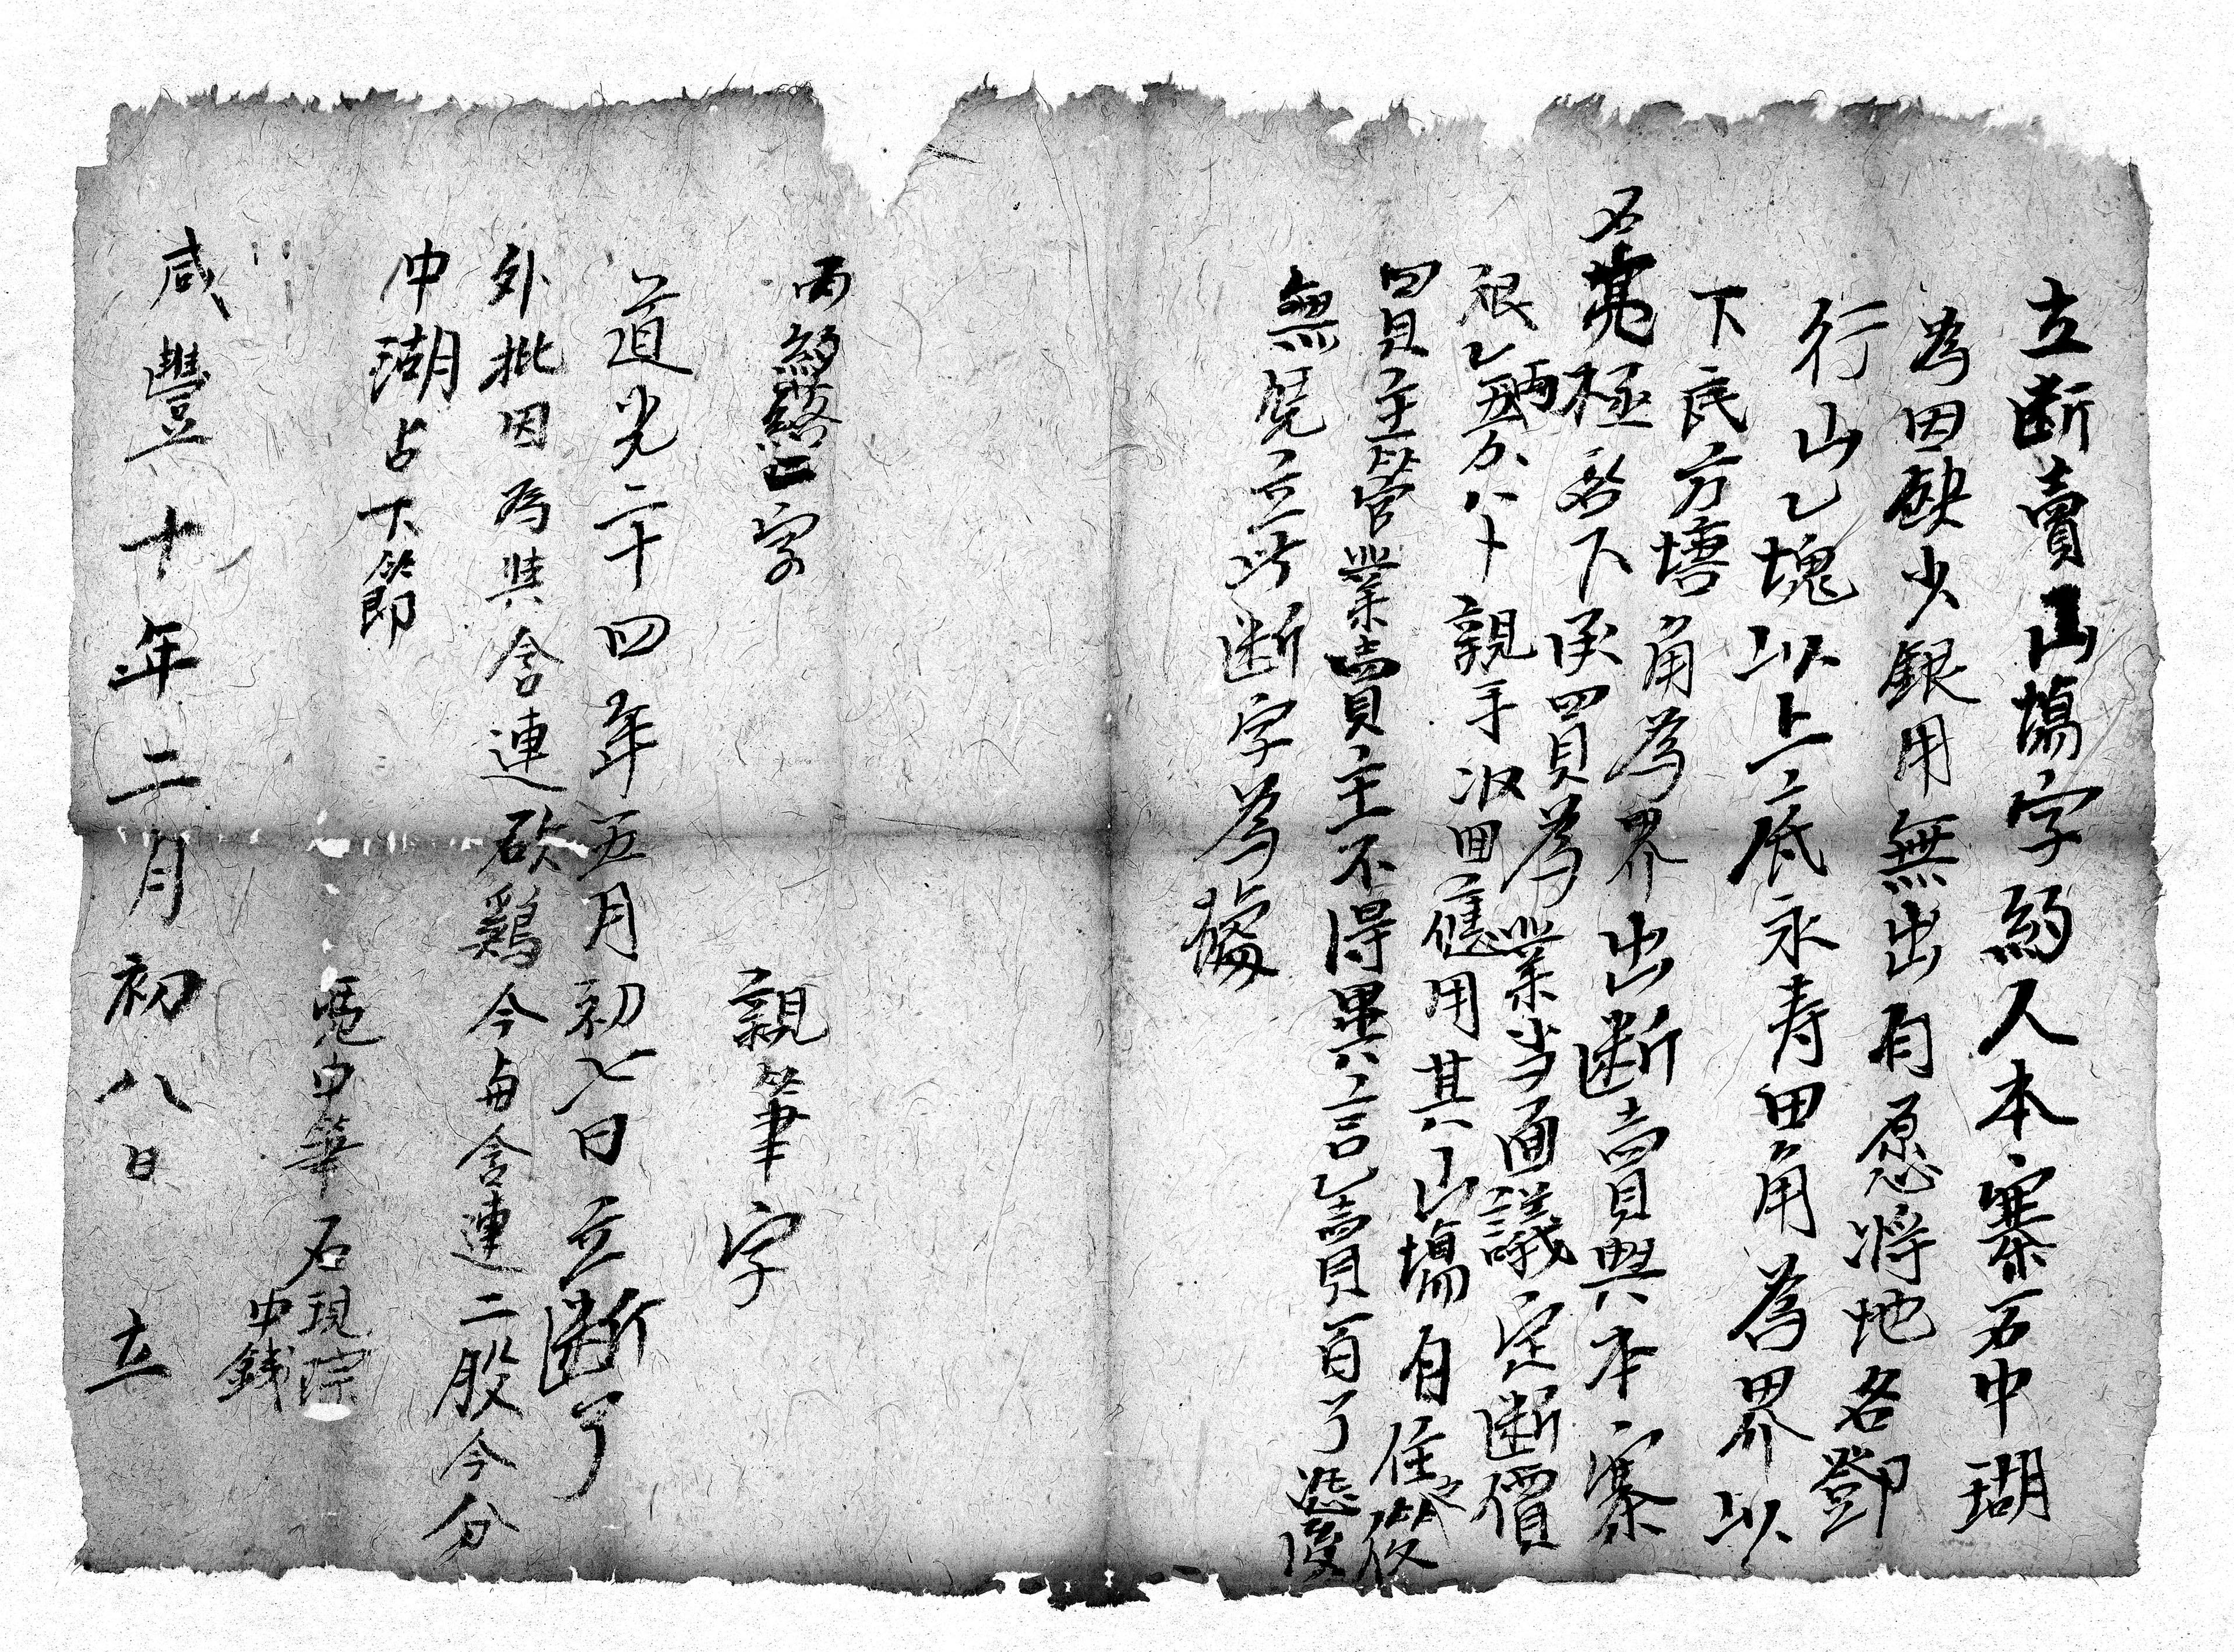 立断賣山塲字約人本寨石中瑚
為因缺少銀用無出自愿将地名鄧
行山乙塊以上上底永寿田角為界以
下底方墻角為界出断賣與本寨
石 極名下承買為業当面議定断價
銀乙両五分八卜親手収回應用其山塲自住之後
買主管業賣主不得異言乙賣百了
無凴立此断字為據
両約 字
親筆字
道光二十四年五月初七日立断了
外批因為其含連砍鷄今每含連二股今分
中瑚占下節
凴中筆 石現宗
中銭
咸豐十年二月初八日 立